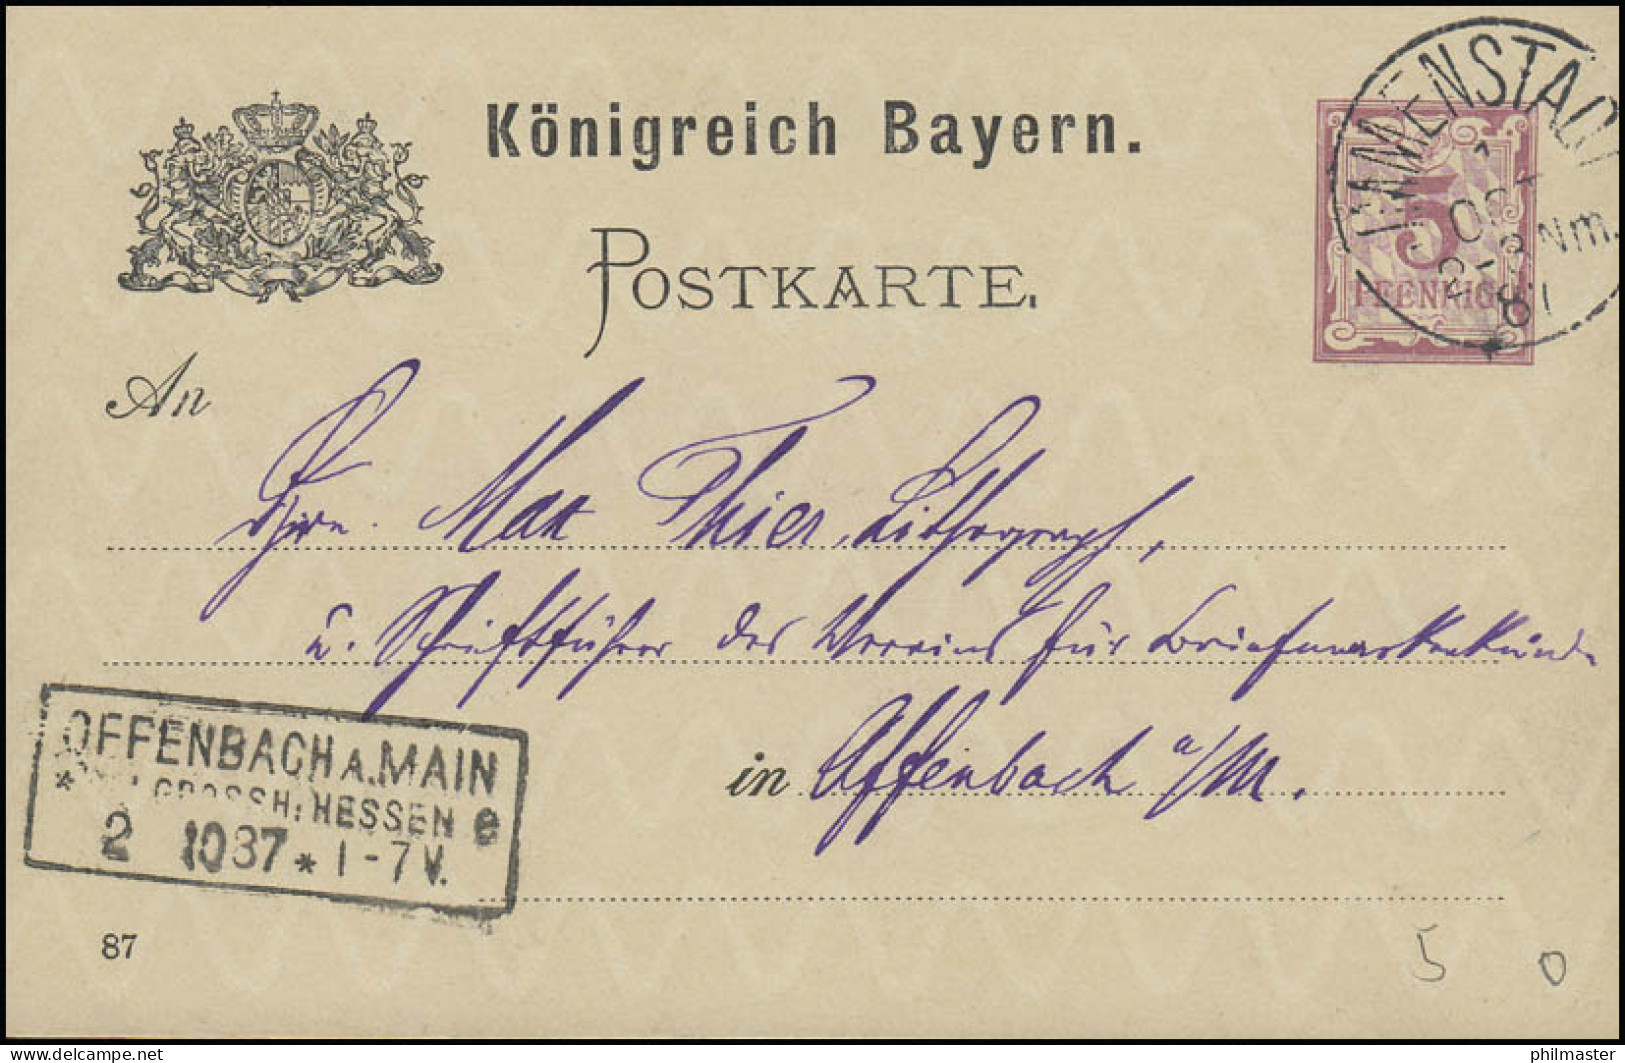 Königreich Bayern.
POSTKARTE.
IMMENSTADT
1
OCT
2-3 Nm.
87
5
PFENNIG
An
Hrn. Max Thier, Lithograph,
u. Schriftführer des Vereins für Briefmarkenkunde
in Offenbach a/M.
OFFENBACH A. MAIN
GROSSH: HESSEN e
2 10 87 * 1-7 V.
87
5 0
philmaster
www.delcampe.net